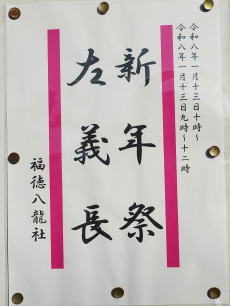 令和八年一月十三日十時～
令和八年一月十三日九時～十二時
新年祭
左義長
福徳八龍社